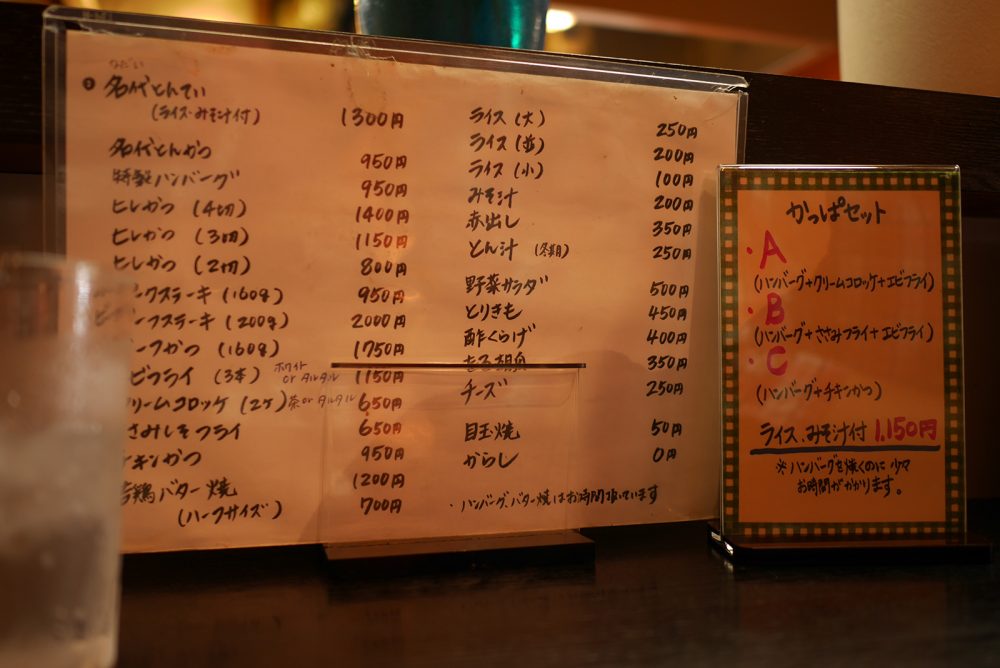 なだい
名代とんてい
(ライス・みそ汁付) 1300円
名代とんかつ 950円
特製ハンバーグ 950円
ヒレかつ (4切) 1400円
ヒレかつ (3切) 1150円
ヒレかつ (2切) 800円
クステーキ (160g) 950円
ーフステーキ (200g) 2000円
ーフかつ (160g) 1750円
ビフライ (3本) ホワイト or タルタル 1150円
リームコロッケ (2ケ) 茶 or タルタル 650円
さみしそフライ 650円
キンかつ 950円
若鶏バター焼 1200円
(ハーフサイズ) 700円
ライス (大) 250円
ライス (並) 200円
ライス (小) 100円
みそ汁 200円
赤出し 350円
とん汁 (冬期) 250円
野菜サラダ 500円
とりきも 450円
酢くらげ 400円
350円
チーズ 250円
目玉焼 50円
からし 0円
・ハンバーグ、バター焼はお時間頂いています
かっぱセット
・A
(ハンバーグ+クリームコロッケ+エビフライ)
・B
(ハンバーグ+ささみフライ+エビフライ)
・C
(ハンバーグ+チキンかつ)
ライス、みそ汁付 1,150円
※ハンバーグを焼くのに少々
お時間がかかります。